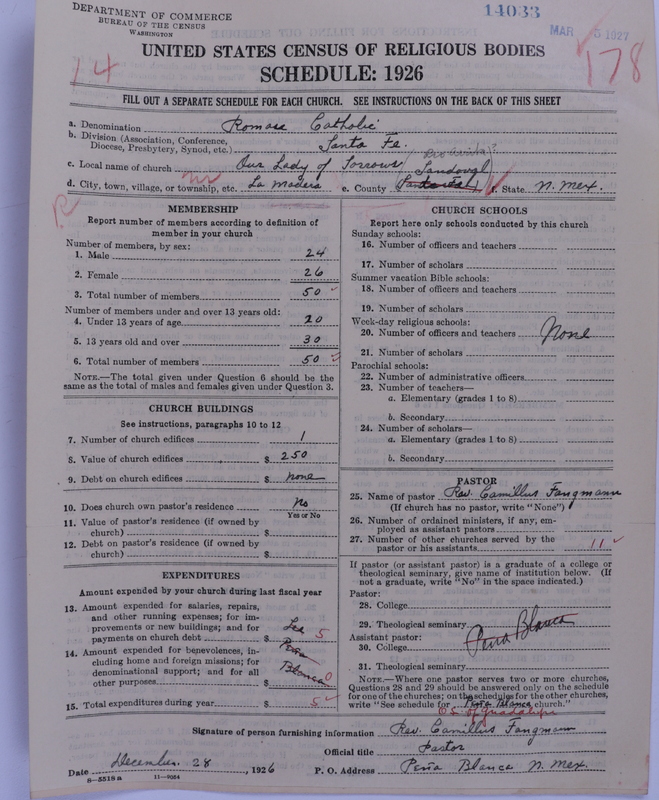 DEPARTMENT OF COMMERCE
BUREAU OF THE CENSUS
WASHINGTON
14033
MAR 5 1927
UNITED STATES CENSUS OF RELIGIOUS BODIES
SCHEDULE: 1926
14
178
FILL OUT A SEPARATE SCHEDULE FOR EACH CHURCH. SEE INSTRUCTIONS ON THE BACK OF THIS SHEET
a. Denomination Roman Catholic
b. Division (Association, Conference, Diocese, Presbytery, Synod, etc.) Santa Fe.
c. Local name of church Our Lady of Sorrows
d. City, town, village, or township, etc. La Madera e. County Sandoval f. State N. Mex.
R
MEMBERSHIP
Report number of members according to definition of
member in your church
Number of members, by sex:
1. Male 24
2. Female 26
3. Total number of members 50
Number of members under and over 13 years old:
4. Under 13 years of age 20
5. 13 years old and over 30
6. Total number of members 50
NOTE.—The total given under Question 6 should be the
same as the total of males and females given under Question 3.
CHURCH BUILDINGS
See instructions, paragraphs 10 to 12
7. Number of church edifices 1
8. Value of church edifices $ 250
9. Debt on church edifices $ none
10. Does church own pastor's residence No
Yes or No
11. Value of pastor's residence (if owned by
church) $
12. Debt on pastor's residence (if owned by
church) $
EXPENDITURES
Amount expended by your church during last fiscal year
13. Amount expended for salaries, repairs,
and other running expenses; for im-
provements or new buildings; and for
payments on church debt $ See 5
14. Amount expended for benevolences, in-
cluding home and foreign missions; for
denominational support; and for all
other purposes $ Peña Blanca 0
15. Total expenditures during year $ 5
CHURCH SCHOOLS
Report here only schools conducted by this church
Sunday schools:
16. Number of officers and teachers
17. Number of scholars
Summer vacation Bible schools:
18. Number of officers and teachers
19. Number of scholars
Week-day religious schools:
20. Number of officers and teachers None
21. Number of scholars
Parochial schools:
22. Number of administrative officers
23. Number of teachers—
a. Elementary (grades 1 to 8)
b. Secondary
24. Number of scholars—
a. Elementary (grades 1 to 8)
b. Secondary
PASTOR
25. Name of pastor Rev. Camillus Fangmann
(If church has no pastor, write "None")
26. Number of ordained ministers, if any, em-
ployed as assistant pastors
27. Number of other churches served by the
pastor or his assistants 11
If pastor (or assistant pastor) is a graduate of a college or
theological seminary, give name of institution below. (If
not a graduate, write "No" in the space indicated.)
Pastor:
28. College
29. Theological seminary
Assistant pastor: Peña Blanca
30. College
31. Theological seminary
NOTE.—Where one pastor serves two or more churches,
Questions 28 and 29 should be answered only on the schedule
for one of the churches; on the schedules for the other churches,
write "See schedule for Peña Blanca church."
OL of Guadalupe
Signature of person furnishing information Rev. Camillus Fangmann
Official title Pastor
Date December 28, 1926 P. O. Address Peña Blanca N. Mex.
8-5518a 11-9054